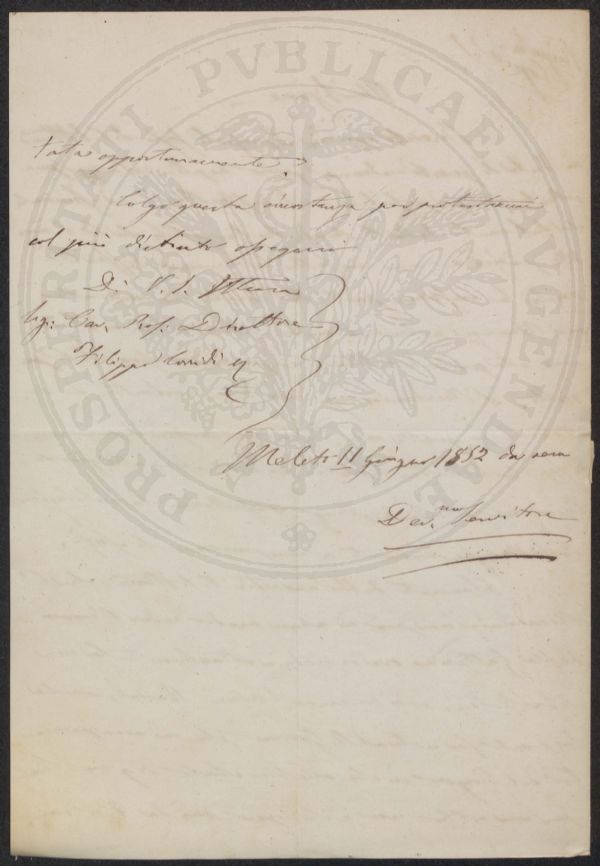 PROSPERITATI PVBLICAE AVGENDAE
tata opportunamente.
Colgo questa circostanza per protestarmi
col più distinto ossequio
Di V. S. Illma
Sig: Cav. Prof: Direttore
Filippo Corridi
Meleto 11 Giugno 1852 da sera
Dev.mo Servitore